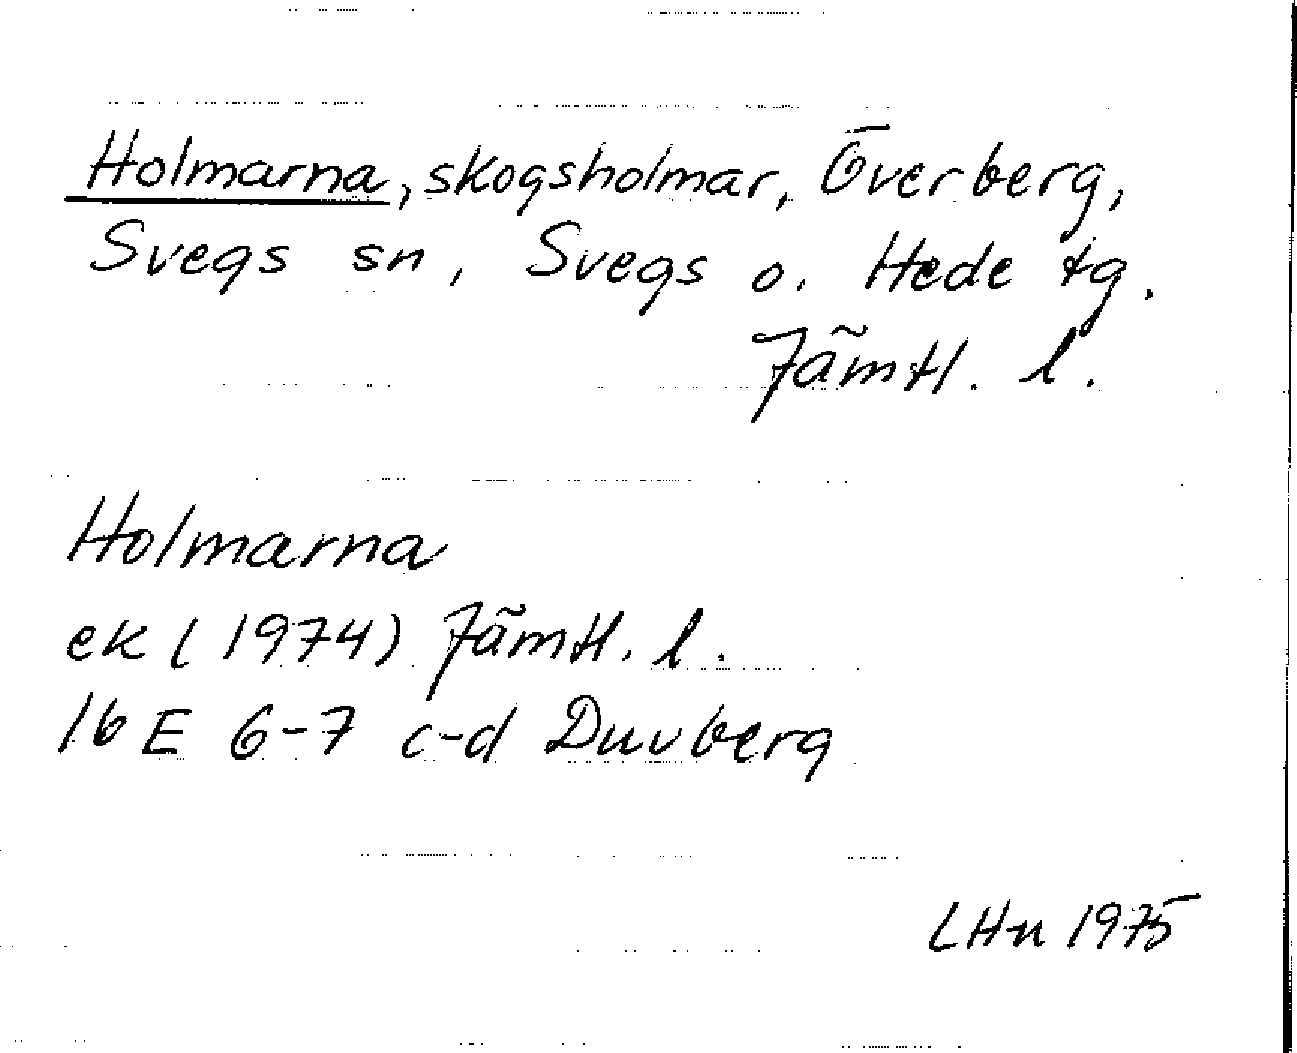 Holmarna, skogsholmar, Överberg,
Svegs sn, Svegs o. Hede tg.
Jämtl. l.
Holmarna
ek (1974) Jämtl. l.
16 E 6-7 c-d Duvberg
LHn 1975